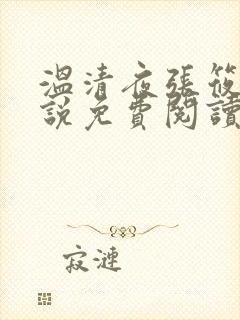 溫清夜張筱
說免費閱讀
寂漣